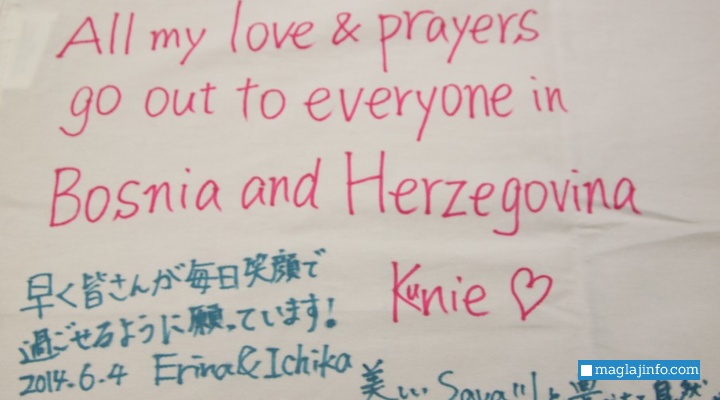 All my love & prayers
go out to everyone in
Bosnia and Herzegovina
Kunie ♡
早く皆さんが毎日笑顔で
過ごせるように願っています!
2014.6.4 Erina & Ichika
美しい Sava川と
maglajinfo.com